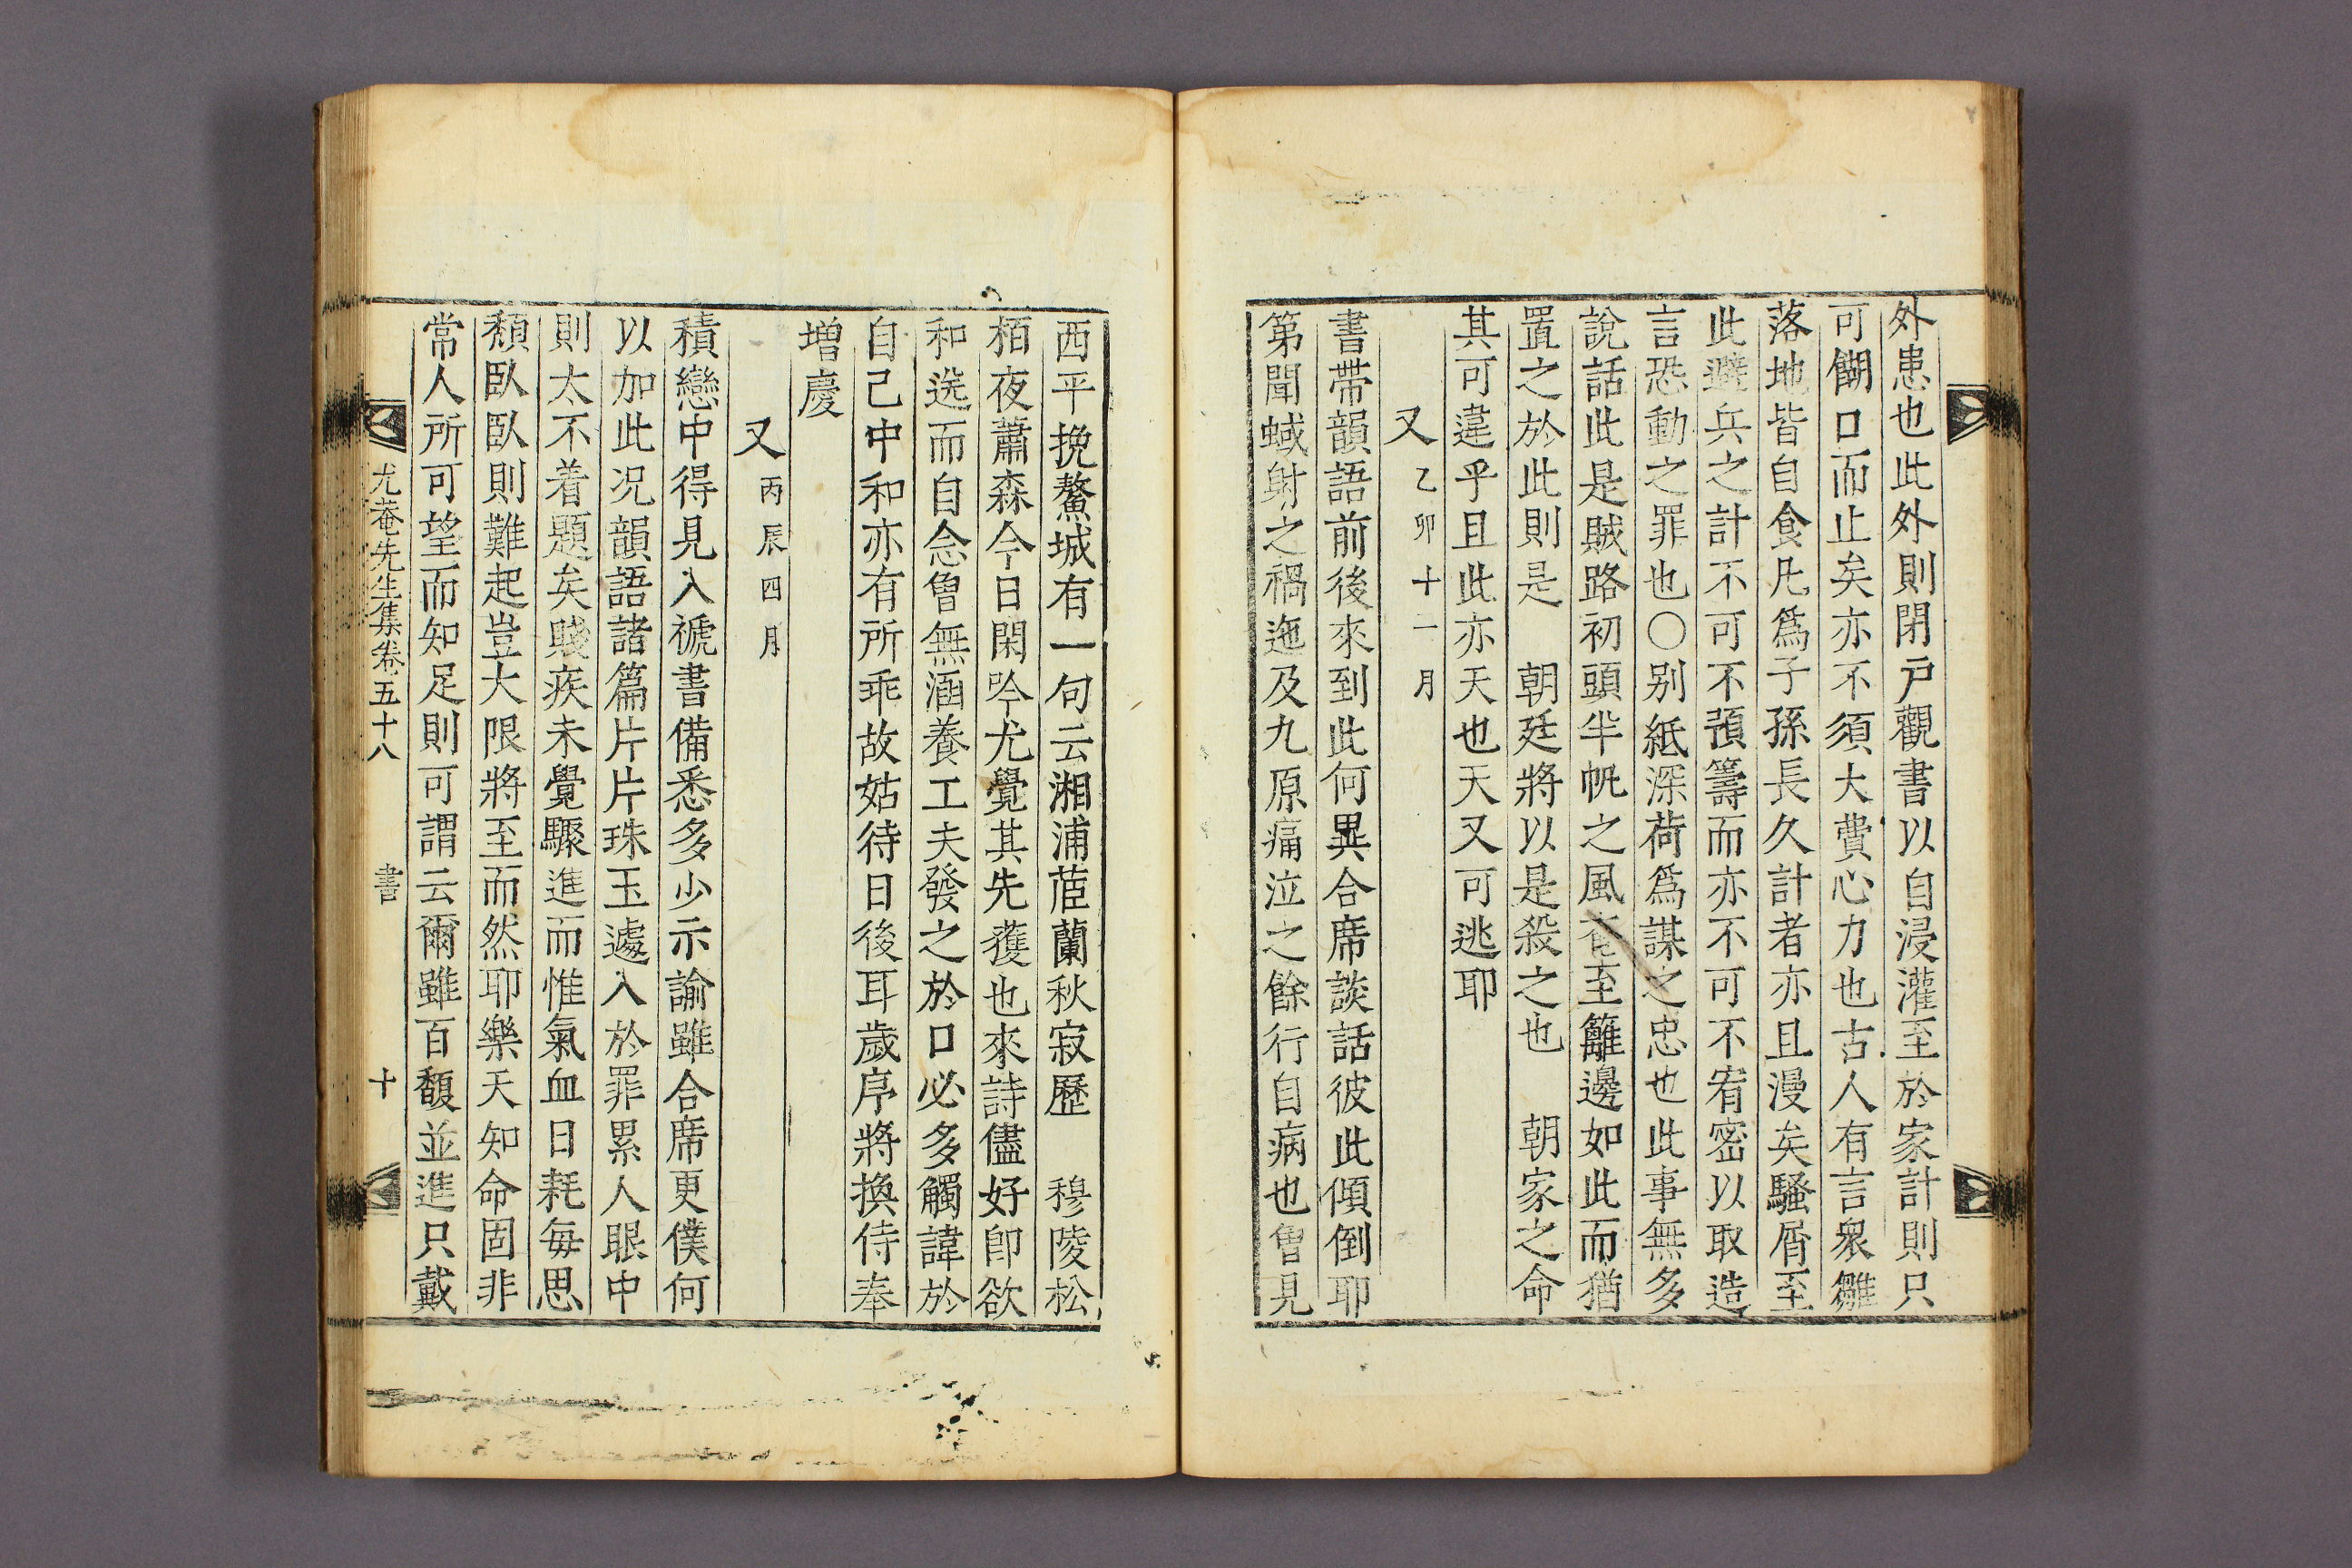 外患也此外則閉戶觀書以自浸灌至於家計則只
可餬口而止矣亦不須大費心力也古人有言衆雛
落地皆自食凡爲子孫長久計者亦且漫矣騷屑至
此避兵之計不可不預籌而亦不可不宥密以取造
言恐動之罪也○別紙深荷爲謀之忠也此事無多
說話此是賊路初頭半帆之風奄至籬邊如此而猶
置之於此則是 朝廷將以是殺之也 朝家之命
其可違乎且此亦天也天又可逃耶
又 乙卯十一月
書帶韻語前後來到此何異合席談話彼此傾倒耶
第聞蜮射之禍迤及九原痛泣之餘行自病也曾見
西平挽鰲城有一句云湘浦茝蘭秋寂歷 穆陵松
栢夜蕭森今日閑吟尤覺其先獲也來詩儘好卽欲
和送而自念曾無涵養工夫發之於口必多觸諱於
自己中和亦有所乖故姑待日後耳歲序將換侍奉
増慶
又 丙辰四月
積戀中得見入褫書備悉多少示諭雖合席更僕何
以加此况韻語諸篇片片珠玉遽入於罪累人眼中
則太不着題矣賤疾未覺驟進而惟氣血日耗每思
頹臥臥則難起豈大限將至而然耶樂天知命固非
常人所可望而知足則可謂云爾雖百馥並進只戴
尤菴先生集卷五十八 書 十